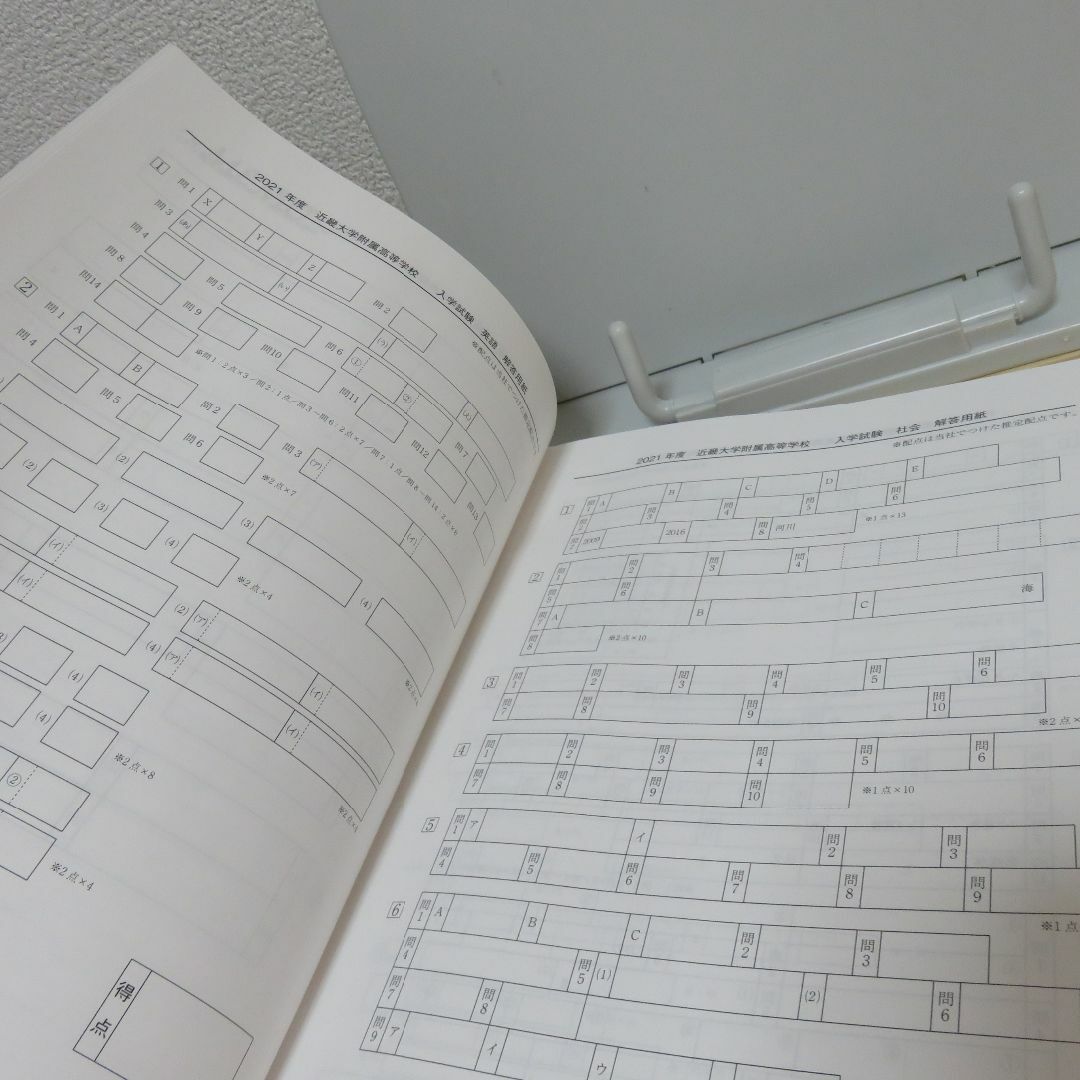 2021年度 近畿大学附属高等学校 入学試験 英語 解答用紙
※配点は当社でつけた推定配点
1 問1 X Y Z 問2
問3 (あ) (い) (う) (え)
問4 問5 問6 ① ② 問7
問8 問9 問10 問11 問12 問13
問14
※問1:2点×3/問2:1点/問3~問6:2点×7/問7:1点/問8~問14:2点×6
2 問1 A B 問2 問3 (ア) (イ)
問4 問5 問6 ※2点×7
(2) (3) (4)
(2) (3) (4) ※2点×4
(イ) (2) (ア) (イ)
(イ) (4) (ア) (イ)
(4)
(4) ※2点×8
②
※2点×4
得点
2021年度 近畿大学附属高等学校 入学試験 社会 解答用紙
※配点は当社でつけた推定配点です。
1 問1 A B C D E
問2 問3 問4 問5 問6
問7 2009 2016 問8 河川 ※1点×13
2 問1 問2 問3 問4
問5 問6
問7 A B C 海
問8 ※2点×10
3 問1 問2 問3 問4 問5 問6
問7 問8 問9 問10
※2点×
4 問1 問2 問3 問4 問5 問6
問7 問8 問9 問10 ※1点×10
5 問1 ア イ 問2 問3
問4 問5 問6 問7 問8 問9
※1点
6 問1 A B C 問2 問3
問4 問5 (1) (2) 問6
問7 問8
問9 ア イ ウ